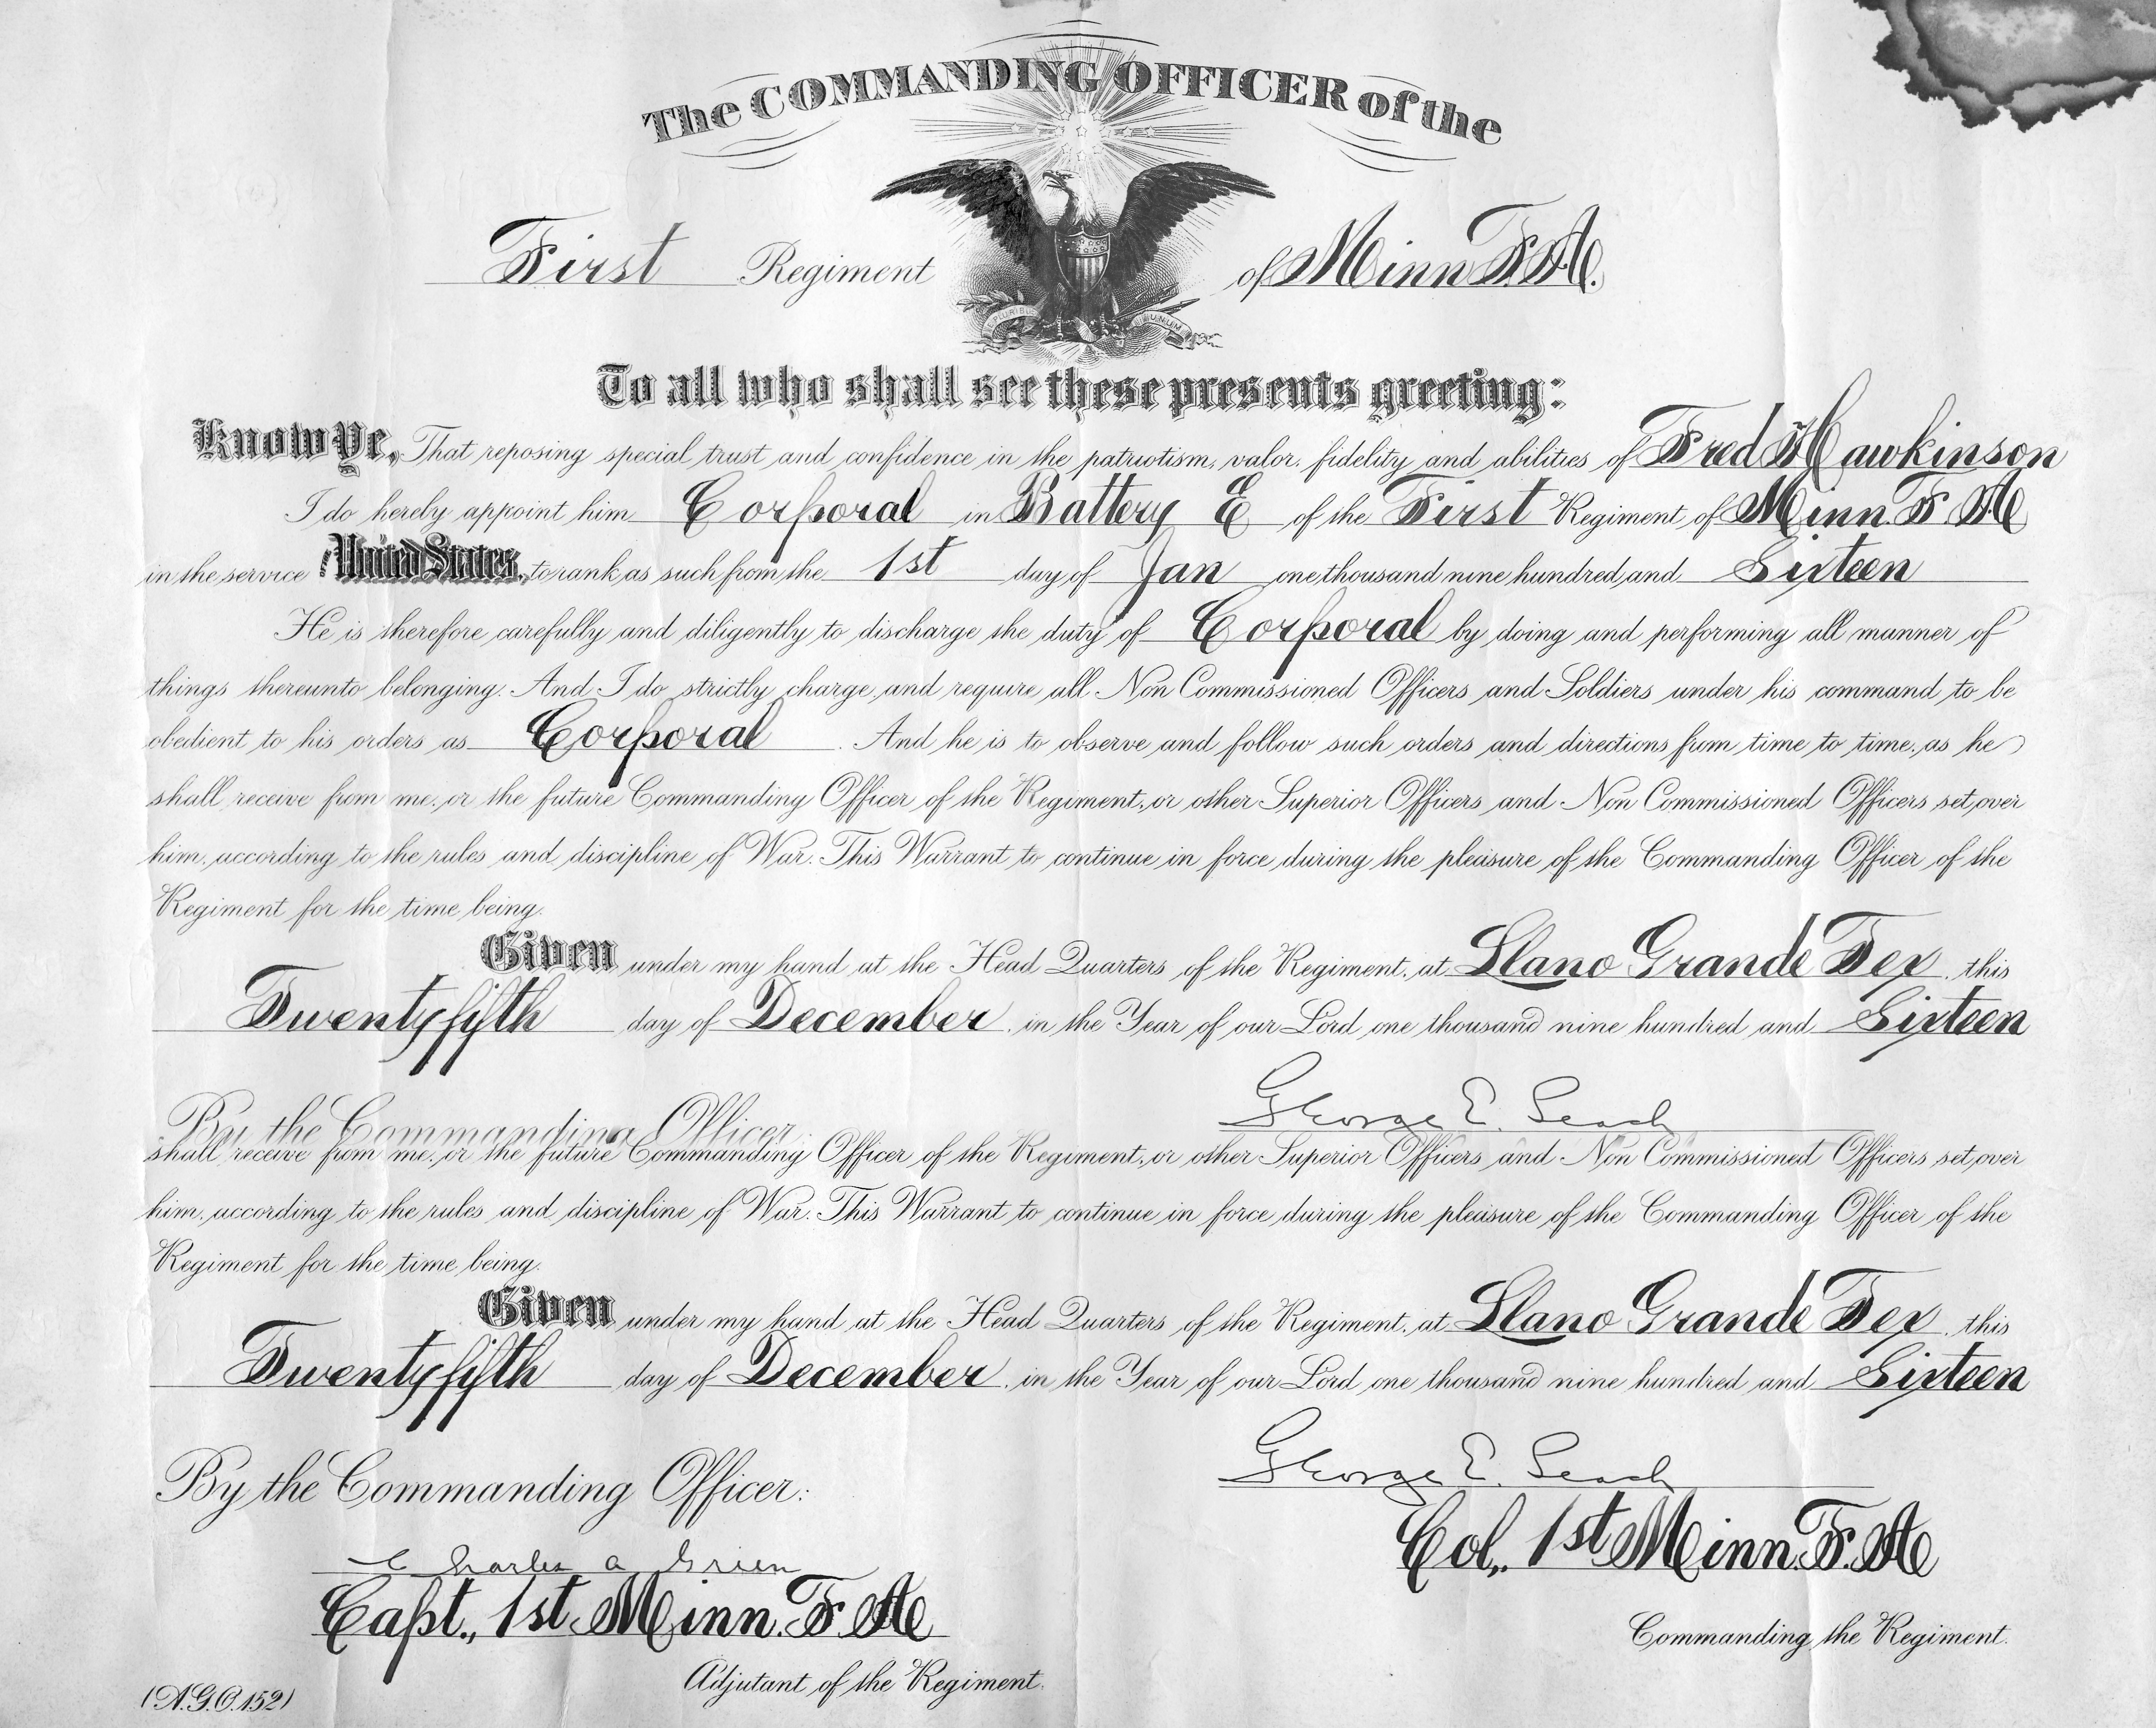 The COMMANDING OFFICER of the
First Regiment of Minn F.A.
E PLURIBUS UNUM
To all who shall see these presents greeting:
Know Ye, That reposing special trust and confidence in the patriotism, valor, fidelity and abilities of Fred Hawkinson
I do hereby appoint him Corporal in Battery E of the First Regiment of Minn. F. A
in the service United States, to rank as such from the 1st day of Jan one thousand nine hundred and Sixteen
He is therefore carefully and diligently to discharge the duty of Corporal by doing and performing all manner of
things thereunto belonging. And I do strictly charge and require all Non Commissioned Officers and Soldiers under his command to be
obedient to his orders as Corporal. And he is to observe and follow such orders and directions from time to time, as he
shall receive from me, or the future Commanding Officer of the Regiment, or other Superior Officers and Non Commissioned Officers set over
him, according to the rules and discipline of War. This Warrant to continue in force during the pleasure of the Commanding Officer of the
Regiment for the time being.
Given under my hand at the Head Quarters of the Regiment, at Llano Grande Tex, this
Twentyfifth day of December, in the Year of our Lord one thousand nine hundred and Sixteen
George E. Leach
By the Commanding Officer
shall receive from me, or the future Commanding Officer of the Regiment, or other Superior Officers and Non Commissioned Officers set over
him, according to the rules and discipline of War. This Warrant to continue in force during the pleasure of the Commanding Officer of the
Regiment for the time being.
Given under my hand at the Head Quarters of the Regiment, at Llano Grande Tex, this
Twentyfifth day of December, in the Year of our Lord one thousand nine hundred and Sixteen
George E. Leach
By the Commanding Officer:
Col., 1st Minn. F. A
Charles A Green
Capt., 1st Minn. F. A
Commanding the Regiment.
Adjutant of the Regiment.
(A.G.O. 152)